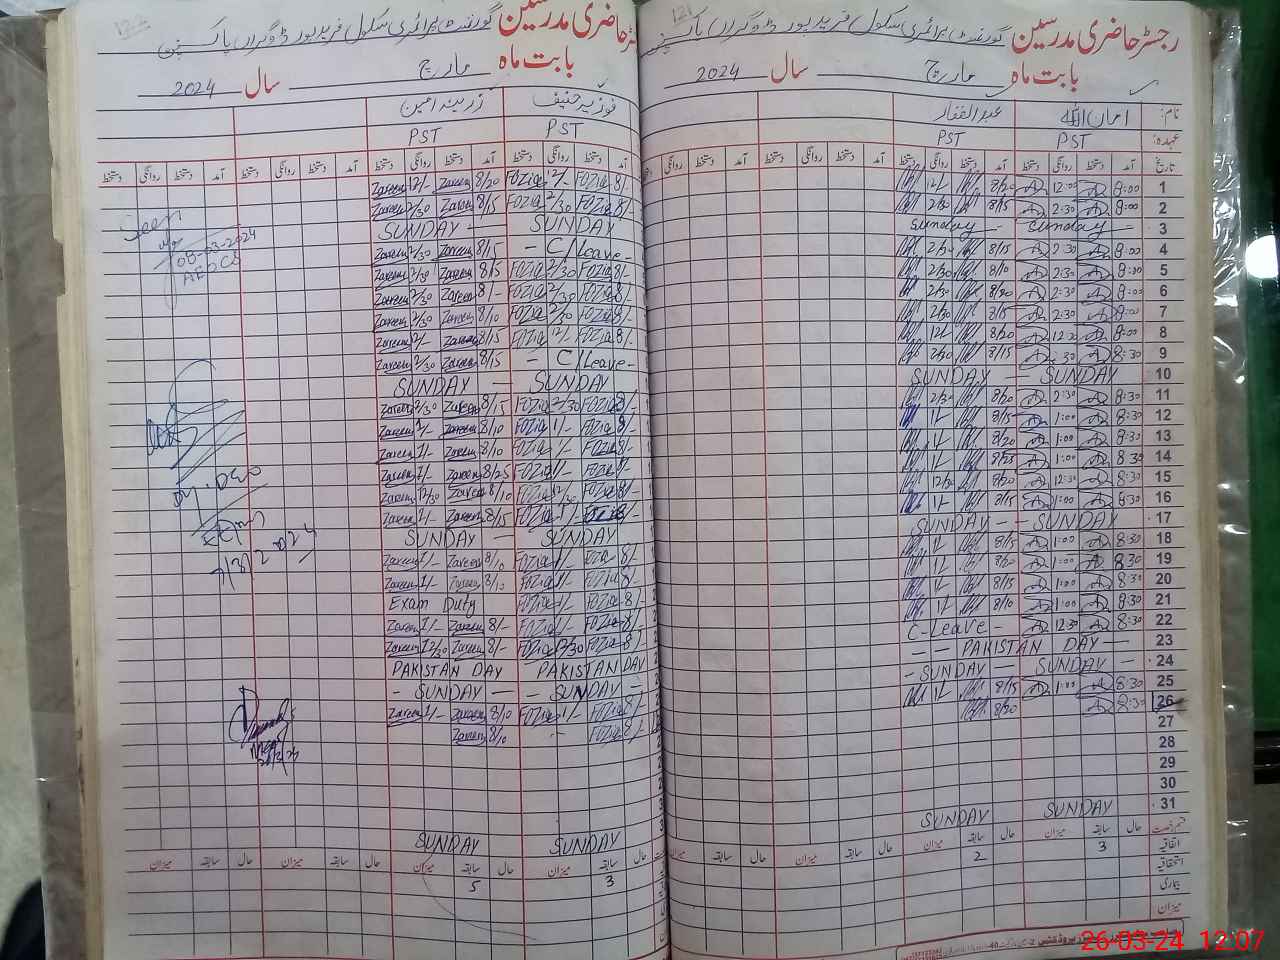 رجسٹر حاضری مدرسین گورنمنٹ پرائمری سکول فرید پور ڈوگراں پاکپتن
بابت ماہ مارچ سال 2024
نام: امان اللہ عبدالغفار
عہدہ: PST PST
تاریخ آمد دستخط روانگی دستخط آمد دستخط روانگی دستخط آمد دستخط روانگی دستخط
1 8:00 12:00 8/20 12/-
2 8:00 2:30 8/15 2/30
3 Sunday Sunday
4 8:00 2:30 8/15 2/30
5 8:00 2:30 8/10 2/30
6 8:00 2:30 8/20 2/30
7 8:00 2:30 8/15 2/30
8 8:00 12:30 8/20 12/-
9 8:30 8/15 2/30
10 SUNDAY SUNDAY
11 8:30 2:30 8/20 2/30
12 8:30 1:00 8/15 1/-
13 8:30 1:00 8/20 1/-
14 8:30 1:00 8/25 1/-
15 8:30 12:30 8/20 12/30
16 8:30 1:00 8/15 1/-
17 SUNDAY SUNDAY
18 8:30 1:00 8/15 1/-
19 8:30 1:00 8/20 1/-
20 8:30 1:00 8/15 1/-
21 8:30 1:00 8/10 1/-
22 8:30 12:30 C-Leave
23 PAKISTAN DAY
24 SUNDAY SUNDAY
25 8:30 1:00 8/15 1/-
26 8:30 8/20
27
28
29
30
31 SUNDAY SUNDAY
حال سابقہ میزان حال سابقہ میزان حال سابقہ میزان
اتفاقیہ 3 2
استحقاقیہ
بیماری
میزان
رجسٹر حاضری مدرسین گورنمنٹ پرائمری سکول فرید پور ڈوگراں پاکپتن
بابت ماہ مارچ سال 2024
فوزیہ حنیف زرینہ امین
PST PST
آمد دستخط روانگی دستخط آمد دستخط روانگی دستخط آمد دستخط روانگی دستخط
8/- FOZia 12/- FOZia 8/20 Zareen 12/- Zareen
8/- FOZia 2/30 FOZia 8/15 Zareen 2/30 Zareen
SUNDAY SUNDAY
C/Leave 8/15 Zareen 2/30 Zareen
8/- FOZia 2/30 FOZia 8/5 Zareen 2/30 Zareen
8/- FOZia 2/30 FOZia 8/- Zareen 2/30 Zareen
8/- FOZia 2/30 FOZia 8/10 Zareen 2/30 Zareen
8/- FOZia 12/- FOZia 8/15 Zareen 2/- Zareen
C/Leave 8/15 Zareen 2/30 Zareen
SUNDAY SUNDAY
8/- FOZia 2/30 FOZia 8/15 Zareen 2/30 Zareen
8/- FOZia 1/- FOZia 8/- Zareen 1/- Zareen
8/- FOZia 1/- FOZia 8/10 Zareen 1/- Zareen
8/- FOZia 1/- FOZia 8/25 Zareen 1/- Zareen
8/- FOZia 12/30 FOZia 8/10 Zareen 12/30 Zareen
8/- FOZia 1/- FOZia 8/15 Zareen 1/- Zareen
SUNDAY SUNDAY
8/- FOZia 1/- FOZia 8/10 Zareen 1/- Zareen
8/- FOZia 1/- FOZia 8/10 Zareen 1/- Zareen
8/- FOZia 1/- FOZia Exam Duty
8/- FOZia 1/- FOZia 8/- Zareen 1/- Zareen
8/- FOZia 12/30 FOZia 8/- Zareen 12/30 Zareen
PAKISTAN DAY PAKISTAN DAY
SUNDAY SUNDAY
8/- FOZia 1/- FOZia 8/10 Zareen 1/- Zareen
8/- FOZia 8/10 Zareen
SUNDAY SUNDAY
حال سابقہ میزان حال سابقہ میزان حال سابقہ میزان
3 5
Seen
08-03-2024
Dy. DEO
26-03-24 12:07